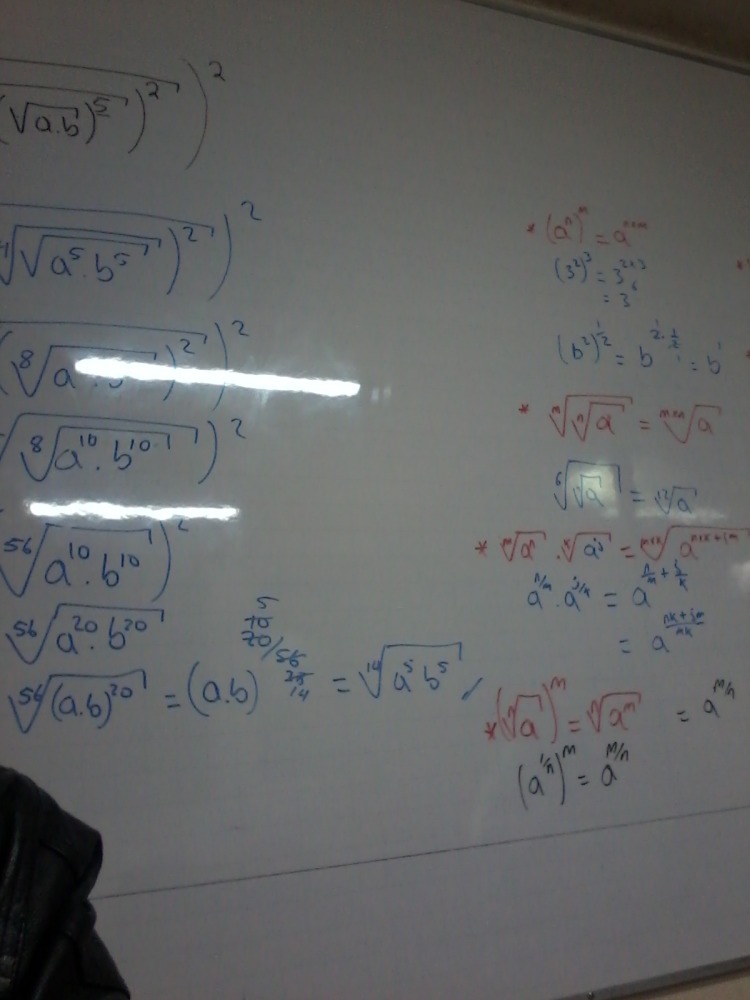 (√a.b)⁵)²)²
√√a⁵.b⁵)²)²
(⁸√a.b)²)²
⁸√a¹⁰.b¹⁰)²
⁵⁶√a¹⁰.b¹⁰)²
⁵⁶√a²⁰.b²⁰
⁵⁶√(a.b)²⁰ = (a.b)
5
10
20/56
28
14
= ¹⁴√a⁵b⁵
* (aⁿ)ᵐ = aⁿˣᵐ
(3²)³ = 3²ˣ³
= 3⁶
(b²)^½ = b^(2·½) = b¹
* ᵐ√ⁿ√a = ᵐˣⁿ√a
⁶√√a = ¹²√a
* ᵐ√aⁿ . ᵏ√aʲ = ᵐˣᵏ√a^(n×k+jm
a^(n/m) . a^(j/k) = a^(n/m + j/k)
= a^((nk+jm)/mk)
* (ⁿ√a)ᵐ = ⁿ√aᵐ = a^(m/n)
(a^(1/n))ᵐ = a^(m/n)